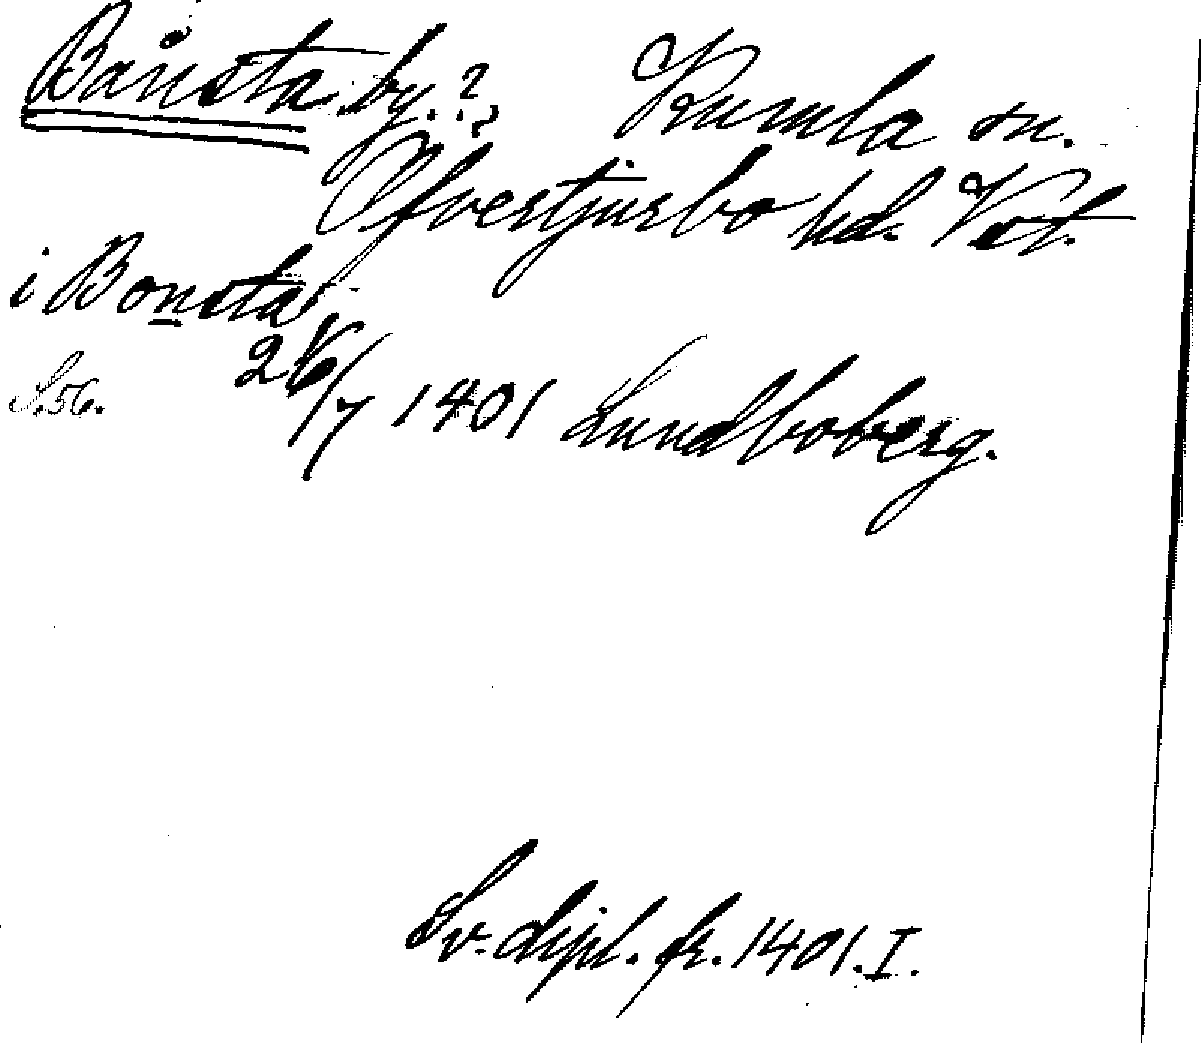 Bånsta by.? Kumla sn.
Ofvertjurbo hd. Vstl.
i Bonsta
S. 56. 26/7 1401 Lundboberg.
Sv. dipl. fr. 1401. I.